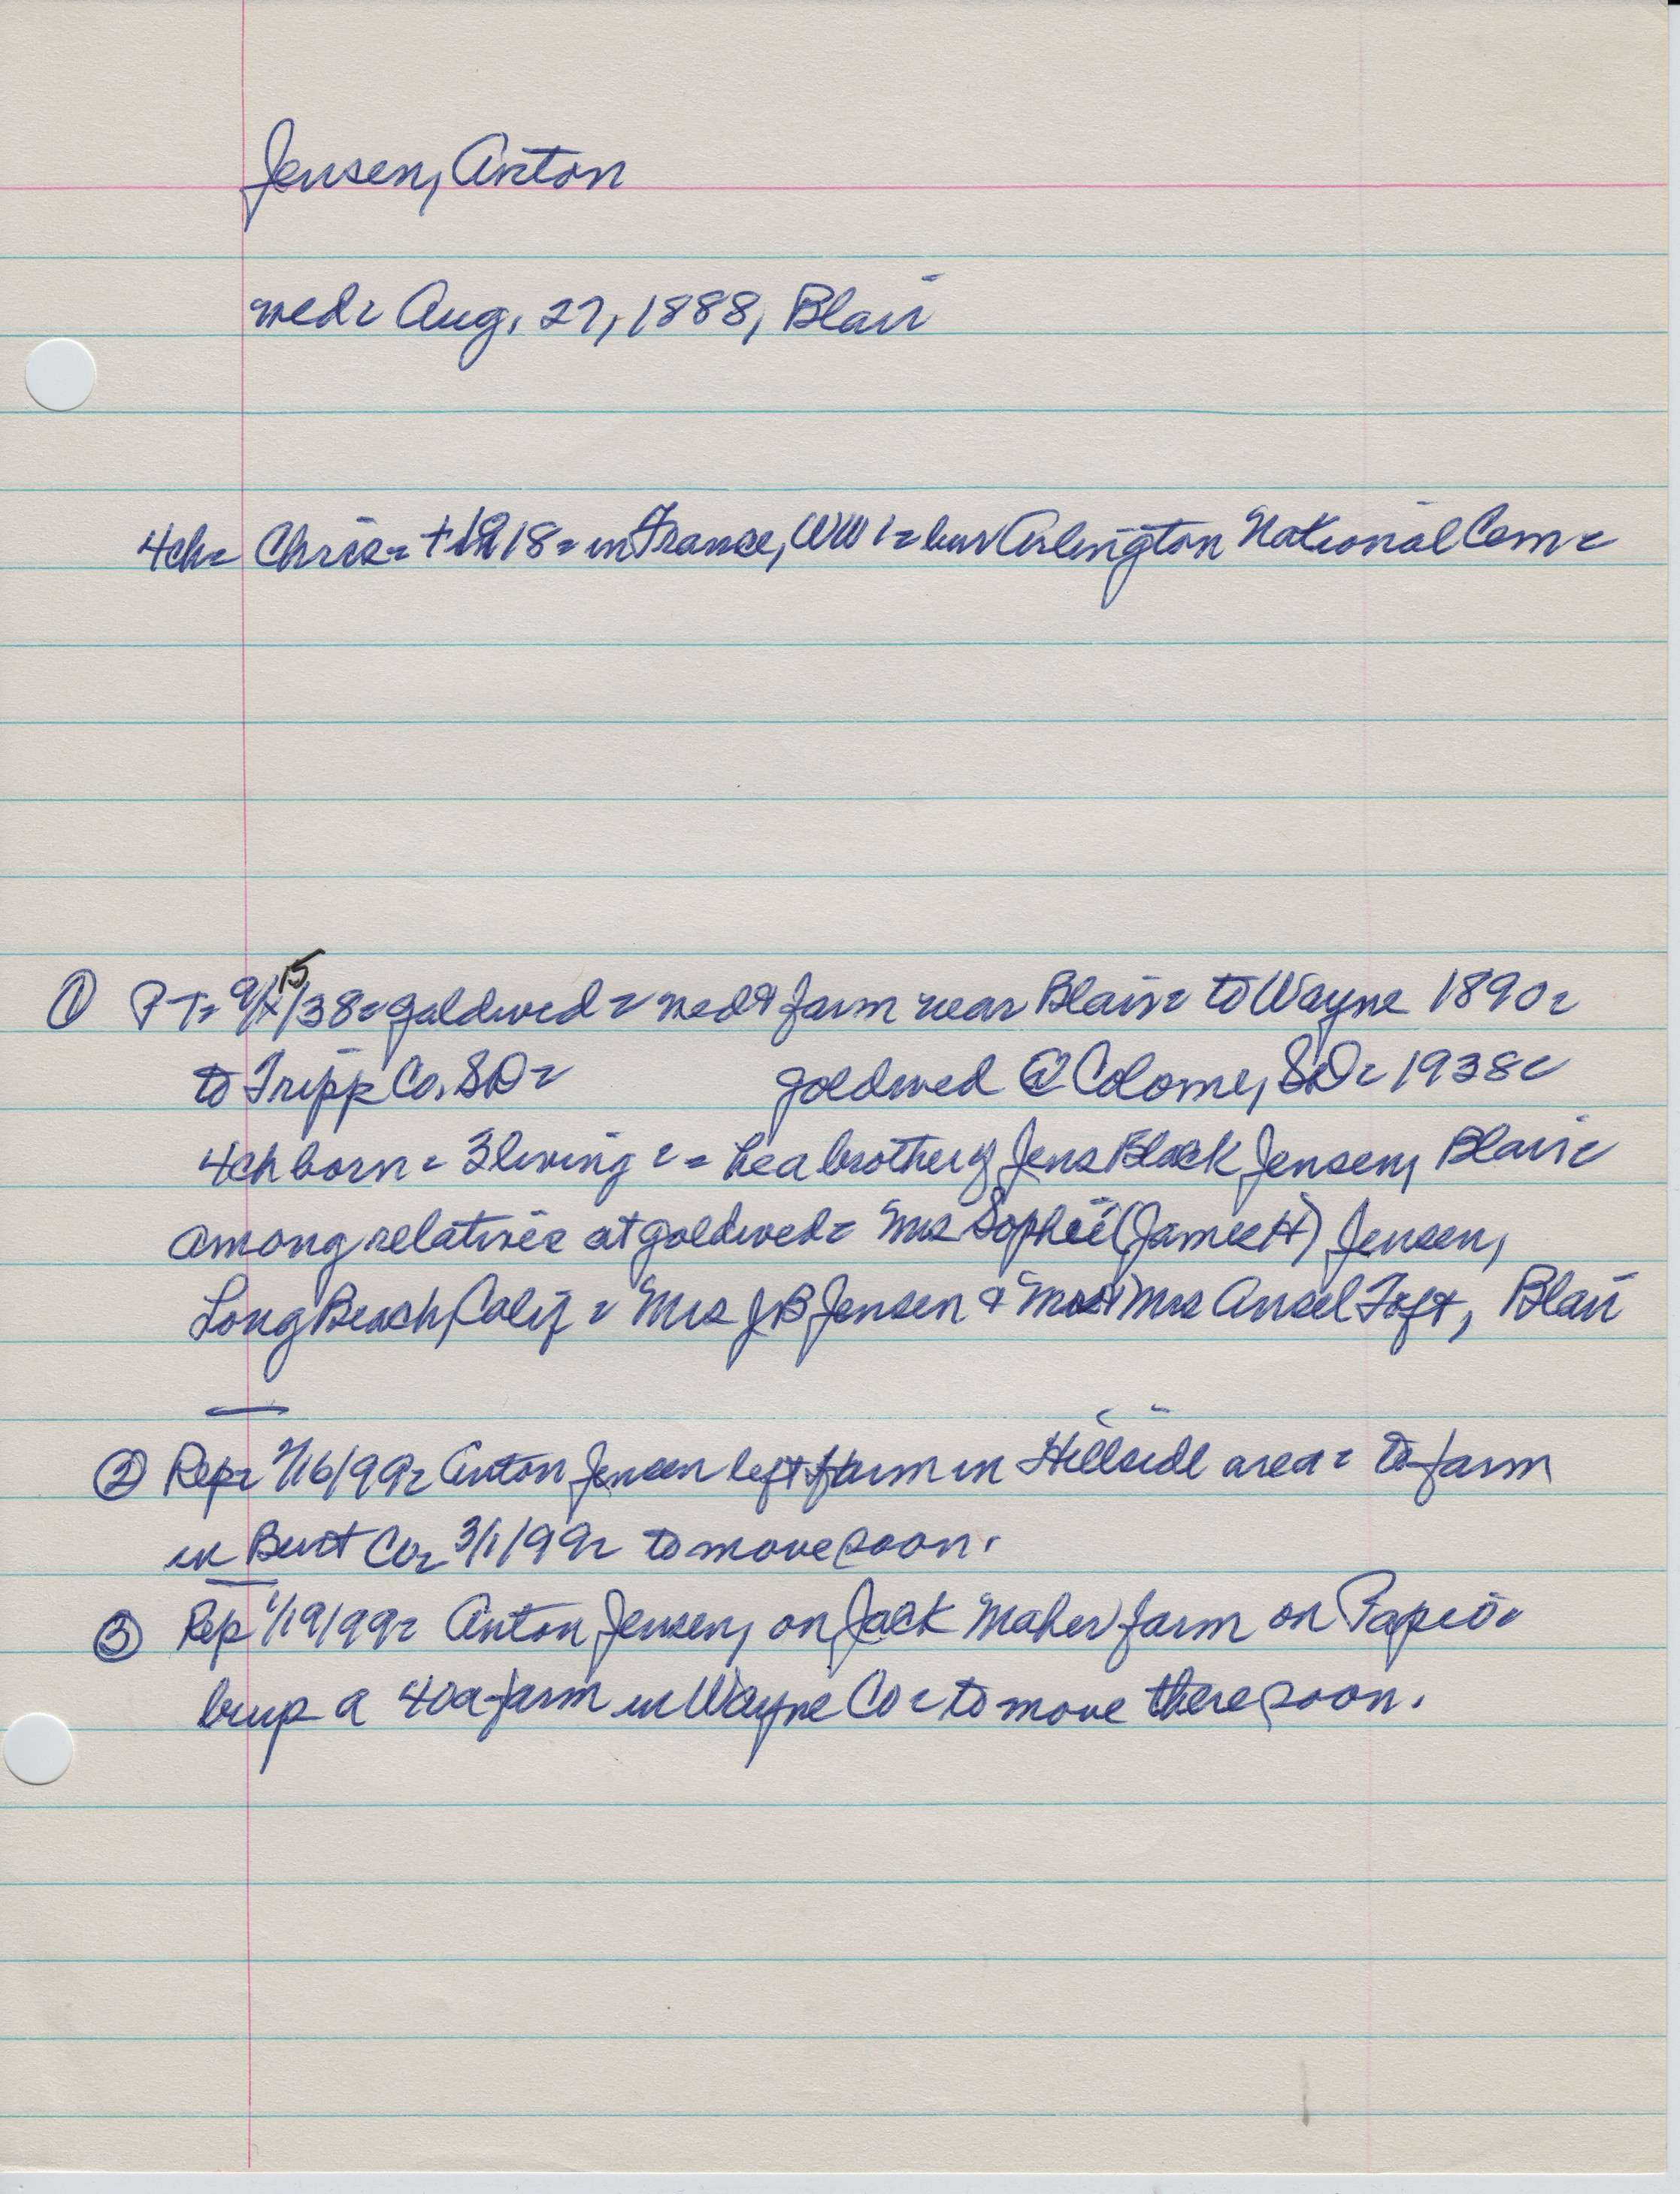 Jensen, Anton
wed= Aug. 27, 1888, Blair
4ch= Chris= + 1918= in France, WW 1= bur Arlington National Cem=
① PT= 9/15/38= goldwed= wed & farm near Blair= to Wayne 1890=
to Tripp Co. SD= goldwed @ Colome, SD= 1938=
4ch born= 3 living= = he a brother of Jens Black Jensen, Blair=
among relatives at goldwed= Mrs Sophie (James H) Jensen,
Long Beach, Calif= Mrs J B Jensen & Mrs Ansel Toft, Blair
② Rep= /16/99= Anton Jensen left farm in Hillside area= to farm
in Burt Co= 3/1/99= to move soon.
③ Rep 1/19/99= Anton Jensen, on Jack Maher farm on Papio=
buys a 40a farm in Wayne Co= to move there soon.